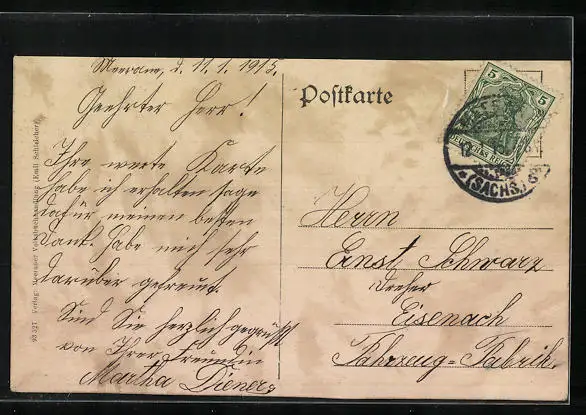 Meerane, d. 11. 1. 1915.
Geehrter Herr!
Ihre werte Karte
habe ich erhalten sage
dafür meinen besten
Dank. Habe mich sehr
darüber gefreut.
Sind Sie herzlich gegrüßt
von Ihrer Freundin
Martha Diener
Postkarte
5 5
DEUTSCHES REICH
(SACHS.)
Herrn
Ernst Schwarz
Dreher
Eisenach
Fahrzeug-Fabrik.
93 327 Verlag: Meeraner Volksbuchhandlung (Emil Schleicher)